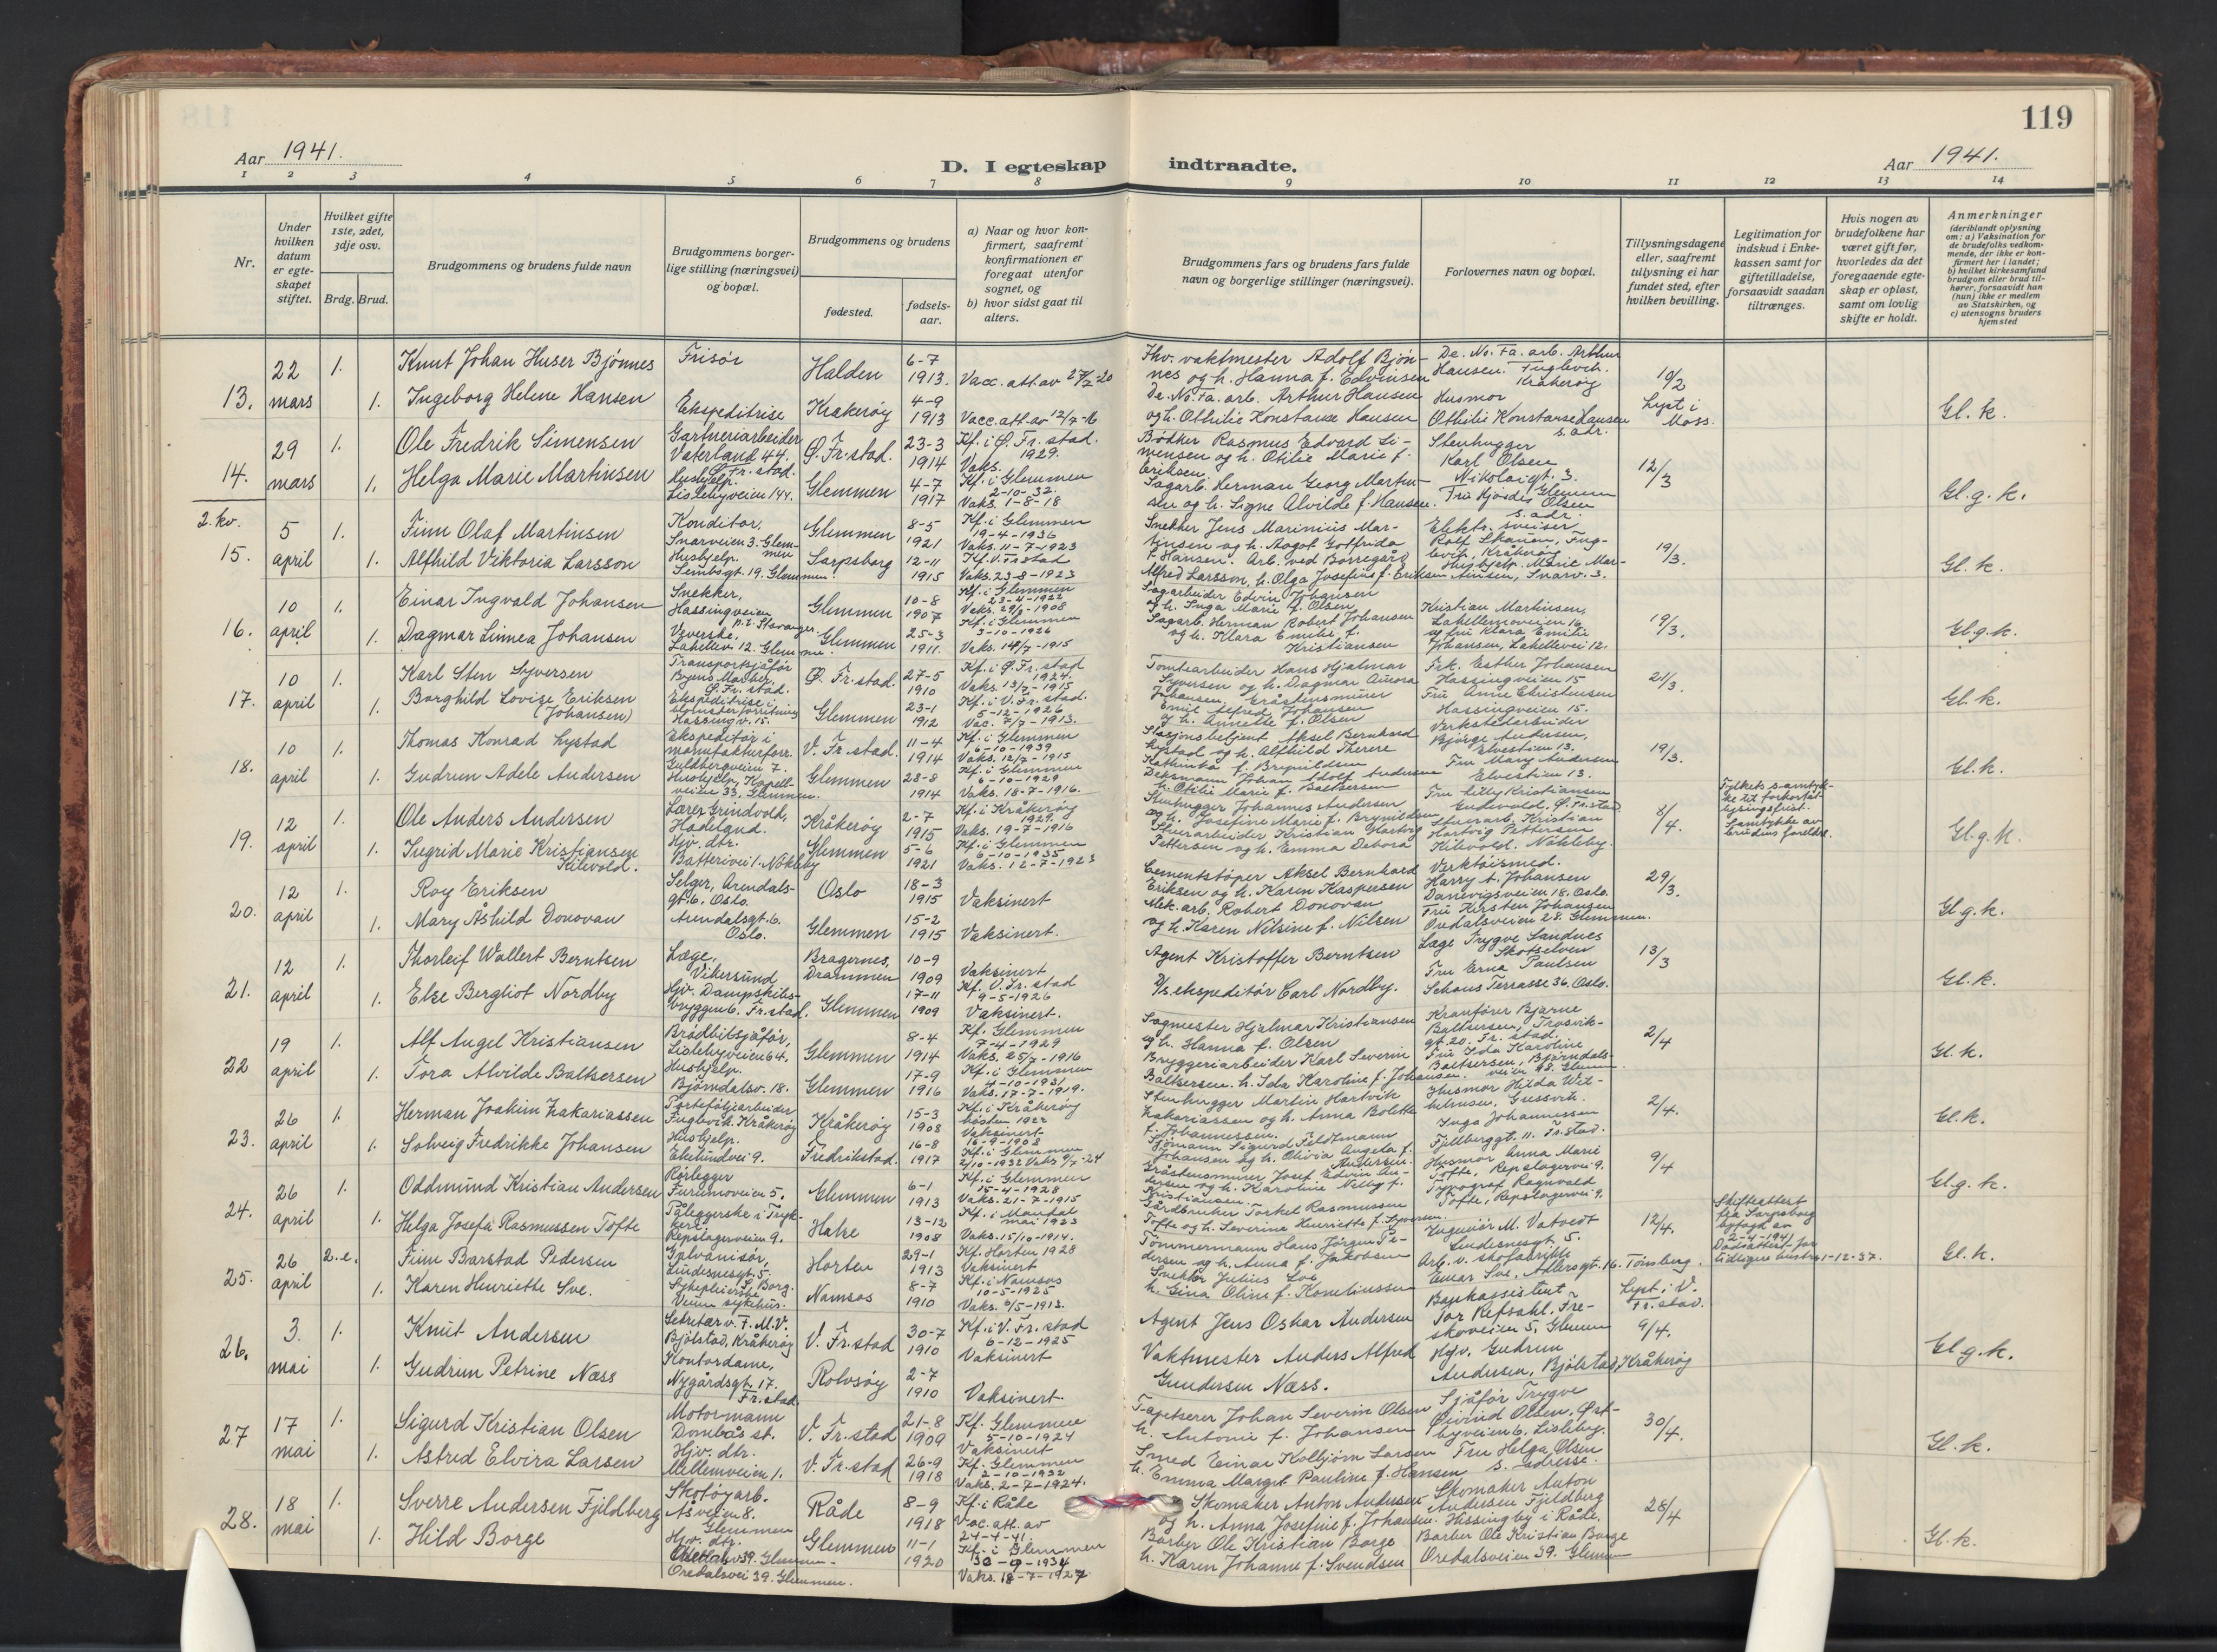 119
Aar 1941.
D. I egteskap indtraadte.
Aar 1941.
1 2 3 4 5 6 7 8 9 10 11 12 13 14
Nr.
Under hvilken datum er egteskapet stiftet.
Hvilket gifte 1ste, 2det, 3dje osv.
Brdg. Brud.
Brudgommens og brudens fulde navn
Brudgommens borgerlige stilling (næringsvei) og bopæl.
Brudgommens og brudens
fødested.
fødselsaar.
a) Naar og hvor konfirmert, saafremt konfirmationen er foregaat utenfor sognet, og
b) hvor sidst gaat til alters.
Brudgommens fars og brudens fars fulde navn og borgerlige stillinger (næringsvei).
Forlovernes navn og bopæl.
Tillysningsdagene eller, saafremt tillysning ei har fundet sted, efter hvilken bevilling.
Legitimation for indskud i Enkekassen samt for giftetilladelse, forsaavidt saadan tiltrænges.
Hvis nogen av brudefolkene har været gift før, hvorledes da det foregaaende egteskap er opløst, samt om lovlig skifte er holdt.
Anmerkninger (deriblandt oplysning om: a) Vaksination for de brudefolks vedkommende, der ikke er konfirmert her i landet; b) hvilket kirkesamfund brudgom eller brud tilhører, forsaavidt han (hun) ikke er medlem av Statskirken, og c) utensogns bruders hjemsted
13. 22 mars 1. 1.
Knut Johan Huser Bjønnes
Frisør
Halden
6-7 1913.
Vacc. att. av
Ingeborg Helene Hansen
Ekspeditrise
Kråkerøy
4-9 1913
Vacc. att. av 12/7-16
Fhv. vaktmester Adolf Bjønnes og h. Hanna f. Edvinsen
De. No. Fa. arb. Arthur Hansen
og h. Othilie Konstanse Hansen
De. No. Fa. arb. Arthur Hansen. Fuglevik. Kråkerøy
Husmor Othilie Konstanse Hansen s. adr.
10/2
Lyst i Moss.
Gl. k.
14. 29 mars 1. 1.
Ole Fredrik Simensen
Gartneriarbeider
Vaterland 44. Ø. Fr. stad.
Ø. Fr. stad.
23-3 1914
Kf. i Ø. Fr. stad. 1929.
Vaks.
Helga Marie Martinsen
Hushjelp.
Lislebyveien 144.
Glemmen
4-7 1917
Kf. i Glemmen
2-10-32.
Vaks. 1-8-18
Bødker Rasmus Edvard Simensen og h. Otilie Marie f. Eriksen
Sagarb. Herman Georg Martinsen og h. Signe Alvilde f. Hansen.
Stenhugger Karl Olsen
Nikolaigt. 3.
Fru Hjørdis Olsen s. adr.
12/3
Gl. g. k.
2. kv.
15. 5 april 1. 1.
Finn Olaf Martinsen
Konditor,
Snarveien 3. Glemmen
Glemmen
8-5 1921
Kf. i Glemmen
19-4-1936
Vaks. 11-7-1923
Alfhild Viktoria Larsson
Hushjelp.
Sarpsborg
12-11 1915
Kf. V. Fr. stad
Vaks. 23-8-1923
Snekker Jens Marinius Martinsen og h. Aagot Gotfrida f. Hansen.
Arb. ved Borregård Alfred Larsson, h. Olga Josefine f. Eriksen
Elektr. sveiser Rolf Skauen, Fuglevik, Kråkerøy
Hushjelp Marie Martinsen, Snarv. 3.
19/3.
Gl. k.
16. 10 april 1. 1.
Einar Ingvald Johansen
Snekker,
Hassingveien p.t. Stavanger
Glemmen
10-8 1907
Kf. i Glemmen
23-4-1922
Dagmar Linnea Johansen
Veverske,
Lahellev. 12. Glemmen.
Glemmen
25-3 1911.
Kf. i Glemmen
3-10-1926
Vaks. 14/7-1915
Sagarbeider Edvin Johansen og h. Inga Marie f. Olsen
Sagarb. Herman Robert Johansen og h. Klara Emilie f. Kristiansen
Kristian Martinsen, Lahellemoveien 16
og fru Klara Emilie Johansen, Lahellevei 12.
19/3.
Gl. g. k.
17. 10 april 1. 1.
Karl Sten Syversen
Transportsjåfør
Ø. Fr. stad.
Ø. Fr. stad.
27-5 1910
Kf. i Ø. Fr. stad 1924.
Vaks. 13/7-1915
Borghild Lovise Eriksen (Johansen)
Ekspeditrise i blomsterforretning
Hassingv. 15.
Glemmen
23-1 1912
Kf. i V. Fr. stad.
5-12-1926
Vac. 7/7-1913.
Tomtearbeider Hans Hjalmar Syversen og h. Dagmar Aurora Johansen.
Gråstensmurer Emil Alfred Johansen og h. Annette f. Olsen
Frk. Esther Johansen
Hassingveien 15
Fru Anne Christensen
Hassingveien 15.
21/3.
Gl. k.
18. 10 april 1. 1.
Thomas Konrad Lystad
Ekspeditør i manufakturforr.
Guldbergveien 7.
V. Fr. stad.
11-4 1914
Kf. i Glemmen
Vaks. 12/7-1915
Gudrun Adele Andersen
Hushjelp, Kapellveien 33, Glemmen.
Glemmen
28-8 1914
Kf. i Glemmen
6-10-1929
Vaks. 18-7-1916.
Stasjonsbetjent Aksel Bernhard Lystad og h. Alfhild Therese Kathinka f. Brynildsen
Deksmann Johan Adolf Andersen h. Otilie Marie f. Baltsersen
Verkstedarbeider Bjørge Andersen, Elvestien 13.
Fru Mary Andersen
Elvestien 13.
19/3.
Gl. k.
19. 12 april 1. 1.
Ole Anders Andersen
Lærer Grindvold, Hadeland.
Kråkerøy
2-7 1915
Kf. i Kråkerøy 1929.
Vaks. 19-7-1916
Ingrid Marie Kristiansen Kilevold.
Hjv. dtr.
Batterivei 1. Nøkleby
Glemmen
5-6 1921
Kf. i Glemmen
6-10-1935
Vaks. 12-7-1923
Stenhugger Johannes Andersen og h. Josefine Marie f. Brynildsen
Stuerarbeider, Kristian Hartvig Pettersen og h. Emma Debora
Fru Lilly Kristiansen
Gudevold, Ø. Fr. stad
Stuerarb. Kristian Hartvig Pettersen
Kilevold. Nøkleby.
8/4.
Fylkets samtykke til forkortet lysingsfrist.
Samtykke av brudens foreldre.
Gl. g. k.
20. 12 april 1. 1.
Roy Eriksen
Selger, Arendalsgt. 6. Oslo.
Oslo
18-3 1915
Vaksinert
Mary Åshild Donovan
Arendalsgt. 6. Oslo.
Glemmen
15-2 1915
Vaksinert.
Cementstøper Aksel Bernhard Eriksen og h. Karen Kaspersen
Mek. arb. Robert Donovan og h. Karen Nilsine f. Nilsen
Verktøismed. Harry A. Johansen
Danevigsveien 18. Oslo.
Fru Kirsten Johansen
Oredalsveien 28. Glemmen.
29/3.
Gl. g. k.
21. 12 april 1. 1.
Thorleif Wallert Berntsen
Læge, Vikersund
Bragernes, Drammen
10-9 1909
Vaksinert
Else Bergliot Nordby
Hjv. Dampskibsbryggen 6. Fr. stad.
Glemmen
17-11 1909
Kf. V. Fr. stad
9-5-1926
Vaksinert.
Agent Kristoffer Berntsen
D/s. ekspeditør Carl Nordby.
Læge Trygve Sandnes
Skotselven
Fru Erna Paulsen
Schous Terrasse 36. Oslo.
13/3
Gl. k.
22 19 april 1. 1.
Alf Angel Kristiansen
Brødbilsjåfør,
Lislebyveien 64.
Glemmen
8-4 1914
Kf. Glemmen
7-4-1929
Vaks. 25/7-1916
Tora Alvilde Baltsersen
Hushjelp.
Bjørndalsv. 18.
Glemmen
17-9 1916
Kf. i Glemmen
4-10-1931
Vaks. 17-7-1919.
Sagmester Hjalmar Kristiansen og h. Hanna f. Olsen
Bryggeriarbeider Karl Severin Baltsersen. h. Ida Karoline f. Johansen.
Kranfører Bjarne Baltsersen, Trosvikgt. 20. Fr. stad.
Fru Ida Karoline Baltsersen, Bjørndalsveien 18. Glemmen.
2/4
Gl. k.
23. 26 april 1. 1.
Herman Joakim Zakariassen
Porteføljearbeider
Fuglevik. Kråkerøy
Kråkerøy
15-3 1908
Kf. i Kråkerøy høsten 1922
Vaksinert
16-9-1908
Solveig Fredrikke Johansen
Hushjelp.
Ekelundvei 9.
Fredrikstad.
16-8 1917
Kf. i Glemmen
2/10-1932 Vaks 9/7-24
Stenhugger Martin Hartvik Zakariassen og h. Anna Bolette f. Johannessen.
Sjømann Sigurd Feldtmann Johansen og h. Olivia Angela f. Andersen.
Husmor Hilda Wilhelmsen, Gressvik.
Inga Johannessen
Fjellberggt. 11. Fr. stad.
2/4.
Gl. k.
24. 26 april 1. 1.
Oddmund Kristian Andersen
Rørlegger
Furumoveien 5.
Glemmen
6-1 1913
Kf. i Glemmen
15-4-1928
Vaks. 21-7-1915
Helga Josefa Rasmussen Tofte
Påleggerske i Trykkeri
Repslagerveien 9.
Halse
13-12 1908
Kf. i Mandal mai 1923
Vaks. 15/10-1914.
Gråstensmurer Josef Edvin Andersen og h. Karoline Nelly f. Kristiansen.
Gårdbruker Torkel Rasmussen Tofte og h. Severine Henriette f. Syversen.
Husmor Anna Marie Tofte, Repslagervei 9.
Typograf Ragnvald Tofte, Repslagervei 9.
9/4
Gl. g. k.
25. 26 april 2. e. 1.
Finn Barstad Pedersen
Galvanisør,
Lindesnesgt. 5.
Horten
29-1 1913
Kf. Horten 1928
Vaksinert
Karen Henriette Sve.
Sykepleierske S. Borg.
Veum sykehus.
Namsos
8-7 1910
Kf. i Namsos
10-5-1925
Tømmermann Hans Jørgen Pedersen og h. Anna f. Jakobsen
Snekker Julius Sve h. Gina Oline f. Korneliussen
Ingeniør M. Vatvedt
Lindesnesgt. 5.
Arb. v. skofabrikk Einar Sve, Adlersgt. 16. Tønsberg.
12/4.
Skifteattest fra Sarpsborg byfogd av 2-4-1941
Dødsattest for tidligere hustru 1-12-37.
Gl. k.
26. 3. mai 1. 1.
Knut Andersen
Sekretær v. F. M. V.
Bjølstad, Kråkerøy
V. Fr. stad
30-7 1910
Kf. i V. Fr. stad
6-12-1925
Vaksinert
Gudrun Petrine Næss
Kontordame,
Nygårdsgt. 17. Fr. stad
Rolvsøy
2-7 1910
Vaksinert
Agent Jens Oskar Andersen
Vaktmester Anders Alfred Gundersen Næss.
Bankassistent Tor Refsahl. Freskoveien 5, Glemmen
Hjv. Gudrun Andersen, Bjølstad, Kråkerøy
Lyst i V. Fr. stad.
9/4.
Gl. g. k.
27 17 mai 1. 1.
Sigurd Kristian Olsen
Motormann
Dombås st.
V. Fr. stad
21-8 1909
Kf. Glemmen
5-10-1924
Vaksinert
Astrid Elvira Larsen
Hjv. dtr.
Mellemveien 1.
V. Fr. stad
26-9 1918
Kf. Glemmen
2-10-1932
Vaks. 2-7-1924.
Tapetserer Johan Severin Olsen h. Antonie f. Johansen
Smed Einar Kolbjørn Larsen h. Emma Margit Pauline f. Hansen
Sjåfør Trygve Øivind Olsen, Østbyveien 6. Lisleby.
Fru Helga Olsen s. adresse.
30/4.
Gl. k.
28. 18 mai 1. 1.
Sverre Andersen Fjeldberg
Skotøyarb.
Åsveien 8. Glemmen
Råde
8-9 1918
Kf. i Råde
Vac. att. av
24-4-41.
Hild Borge
Hjv. dtr.
Oredalsvei 39. Glemmen.
Glemmen
11-1 1920
Kf. i Glemmen
30-9-1934
Vaks. 18-7-1927
Skomaker Anton Andersen og h. Anna Josefine f. Johansen.
Barber Ole Kristian Borge h. Karen Johanne f. Svendsen
Skomaker Anton Andersen Fjeldberg
Hissingby i Råde.
Barber Ole Kristian Borge
Oredalsveien 39. Glemmen
28/4
Gl. k.